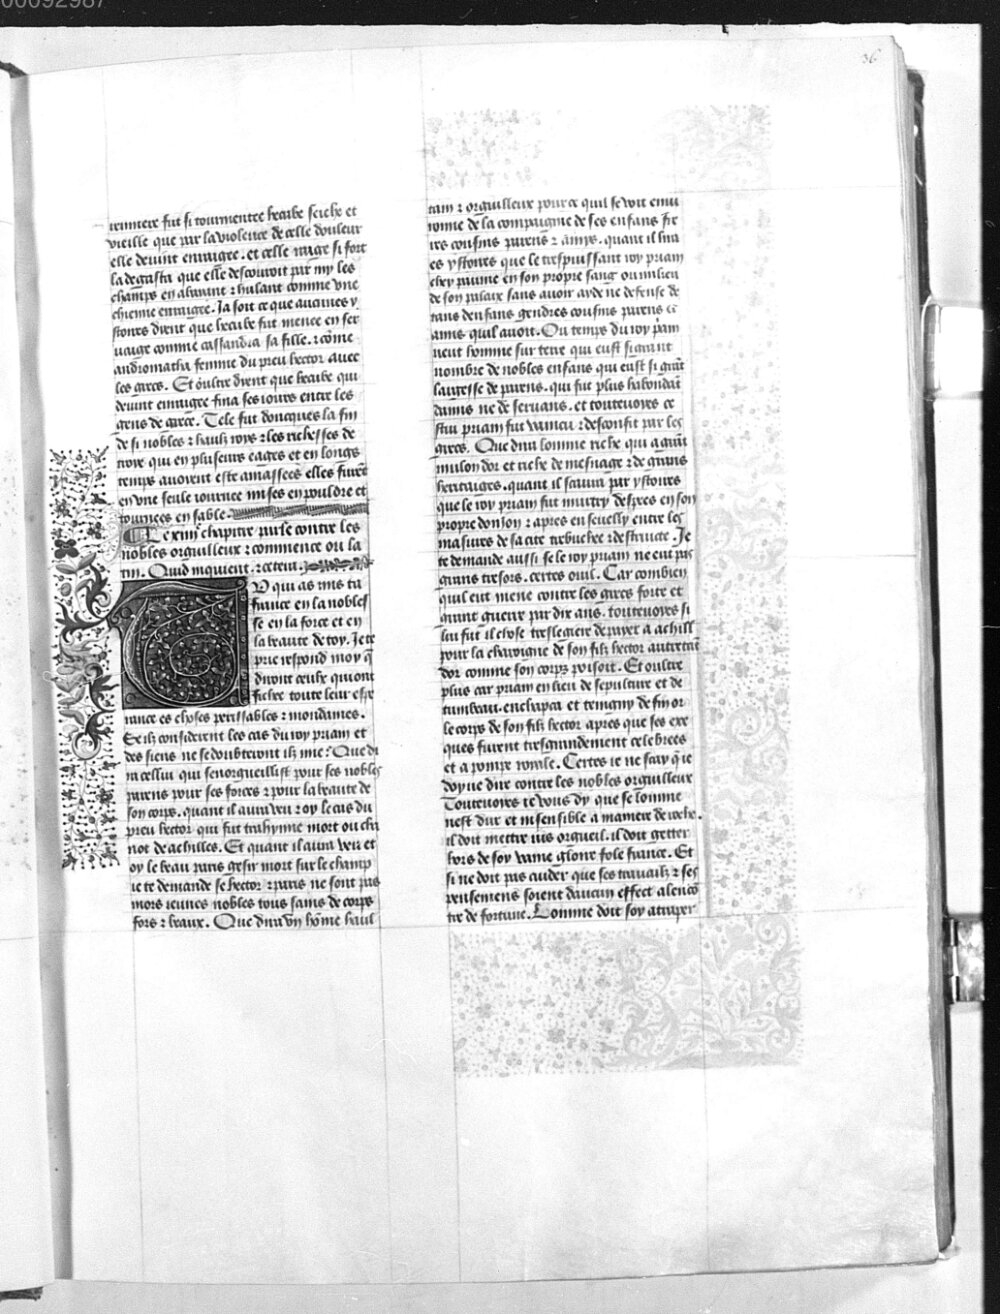 00092987
36
miniere fut si tourmentee hecube seiche et
vieille que par la violence de celle douleur
elle deuint enraigee. et celle raige si fort
la degasta que elle descouroit par my les
champs en abaiant ⁊ hulant comme vne
chienne enraigee. Ja soit ce que aucunes y
stoires dient que hecube fut menee en ser
uaige comme cassandra sa fille. ⁊ cōme
andromatha femme du preu hector auec
les grecs. Et oultre dient que hecube qui
deuint enraigee fina ses iours entre les
gens de grece. Tele fut doncques la fin
de si nobles ⁊ haulz roys ⁊ les richesses de
troye qui en pluseurs eages et en longs
temps auoient este amassees elles furēt
en vne seule iournee mises en pouldre et
tournees en sable.
Le xiiiie chapitre parle contre les
nobles orguilleux ⁊ commence ou la
tin. Quid inquient. ⁊cetera.
Tu qui as mis ta
fiance en la nobles
se en la force et en
la beaute de toy. Je te
prie respond moy q̄
diront ceulx qui ont
fichee toute leur espe
rance es choses perissables ⁊ mondaines.
Se ilz considerent les cas du roy priam et
des siens ne se doubteront ilz mie? Que di
ra cellui qui senorgueillist pour ses nobles
parens pour ses forces ⁊ pour la beaute de
son corps. quant il aura veu ⁊ oy le cas du
preu hector qui fut trahyne mort ou cha
riot de achilles. Et quant il aura veu et
oy le beau paris gesir mort sur le champ
ie te demande se hector ⁊ paris ne sont pas
mors ieunes nobles tous sains de corps
fors ⁊ beaux. Que dira vn hōme haul
tain ⁊ orguilleux pource quil se voit enui
ronne de la compaignie de ses enfans fre
res cousins parens ⁊ amys. quant il lira
es ystoires que le trespuissant roy priam
chey pasme en son propre sang ou milieu
de son palaix sans auoir ayde ne defense de
tans denfans gendres cousins parens ⁊
amis quil auoit. Ou temps du roy p̄am
neut homme sur terre qui eust si grant
nombre de nobles enfans qui eust si grāt
largesse de parens. qui fut plus habondāt
damis ne de seruans. et touteuoyes ce
stui priam fut vaincu ⁊ desconfit par les
grecs. Que dira lomme riche qui a grāt
mulon dor et riche de mesnage ⁊ de grans
heritaiges. quant il scaura par ystoires
que le roy priam fut murtry despees en son
propre donion ⁊ apres enseuely entre les
masures de sa cite trebuchee ⁊ destruicte. Je
te demande aussi se le roy priam ne eut pas
grans tresors. certes ouil. Car combien
quil eut mene contre les grecs forte et
grant guerre par dix ans. touteuoyes si
lui fut il chose treslegiere de payer a achill
pour la charoigne de son filz hector autretāt
dor comme son corps poisoit. Et oultre
plus car priam en lieu de sepulture et de
tumbeau enchapa et teingny de fin or
le corps de son filz hector apres que ses exe
ques furent tresgrandement celebrees
et a pompe royale. Certes ie ne scay q̄ ie
doyue dire contre les nobles orguilleux
Touteuoyes ie vous dy que se lomme
nest dur et insensible a maniere de roche.
il doit mettre ius orgueil. il doit getter
hors de soy vaine gloire fole fiance. Et
si ne doit pas cuider que ses trauailz ⁊ ses
pensemens soient daucun effect alenco
tre de fortune. Lomme doit soy atramper